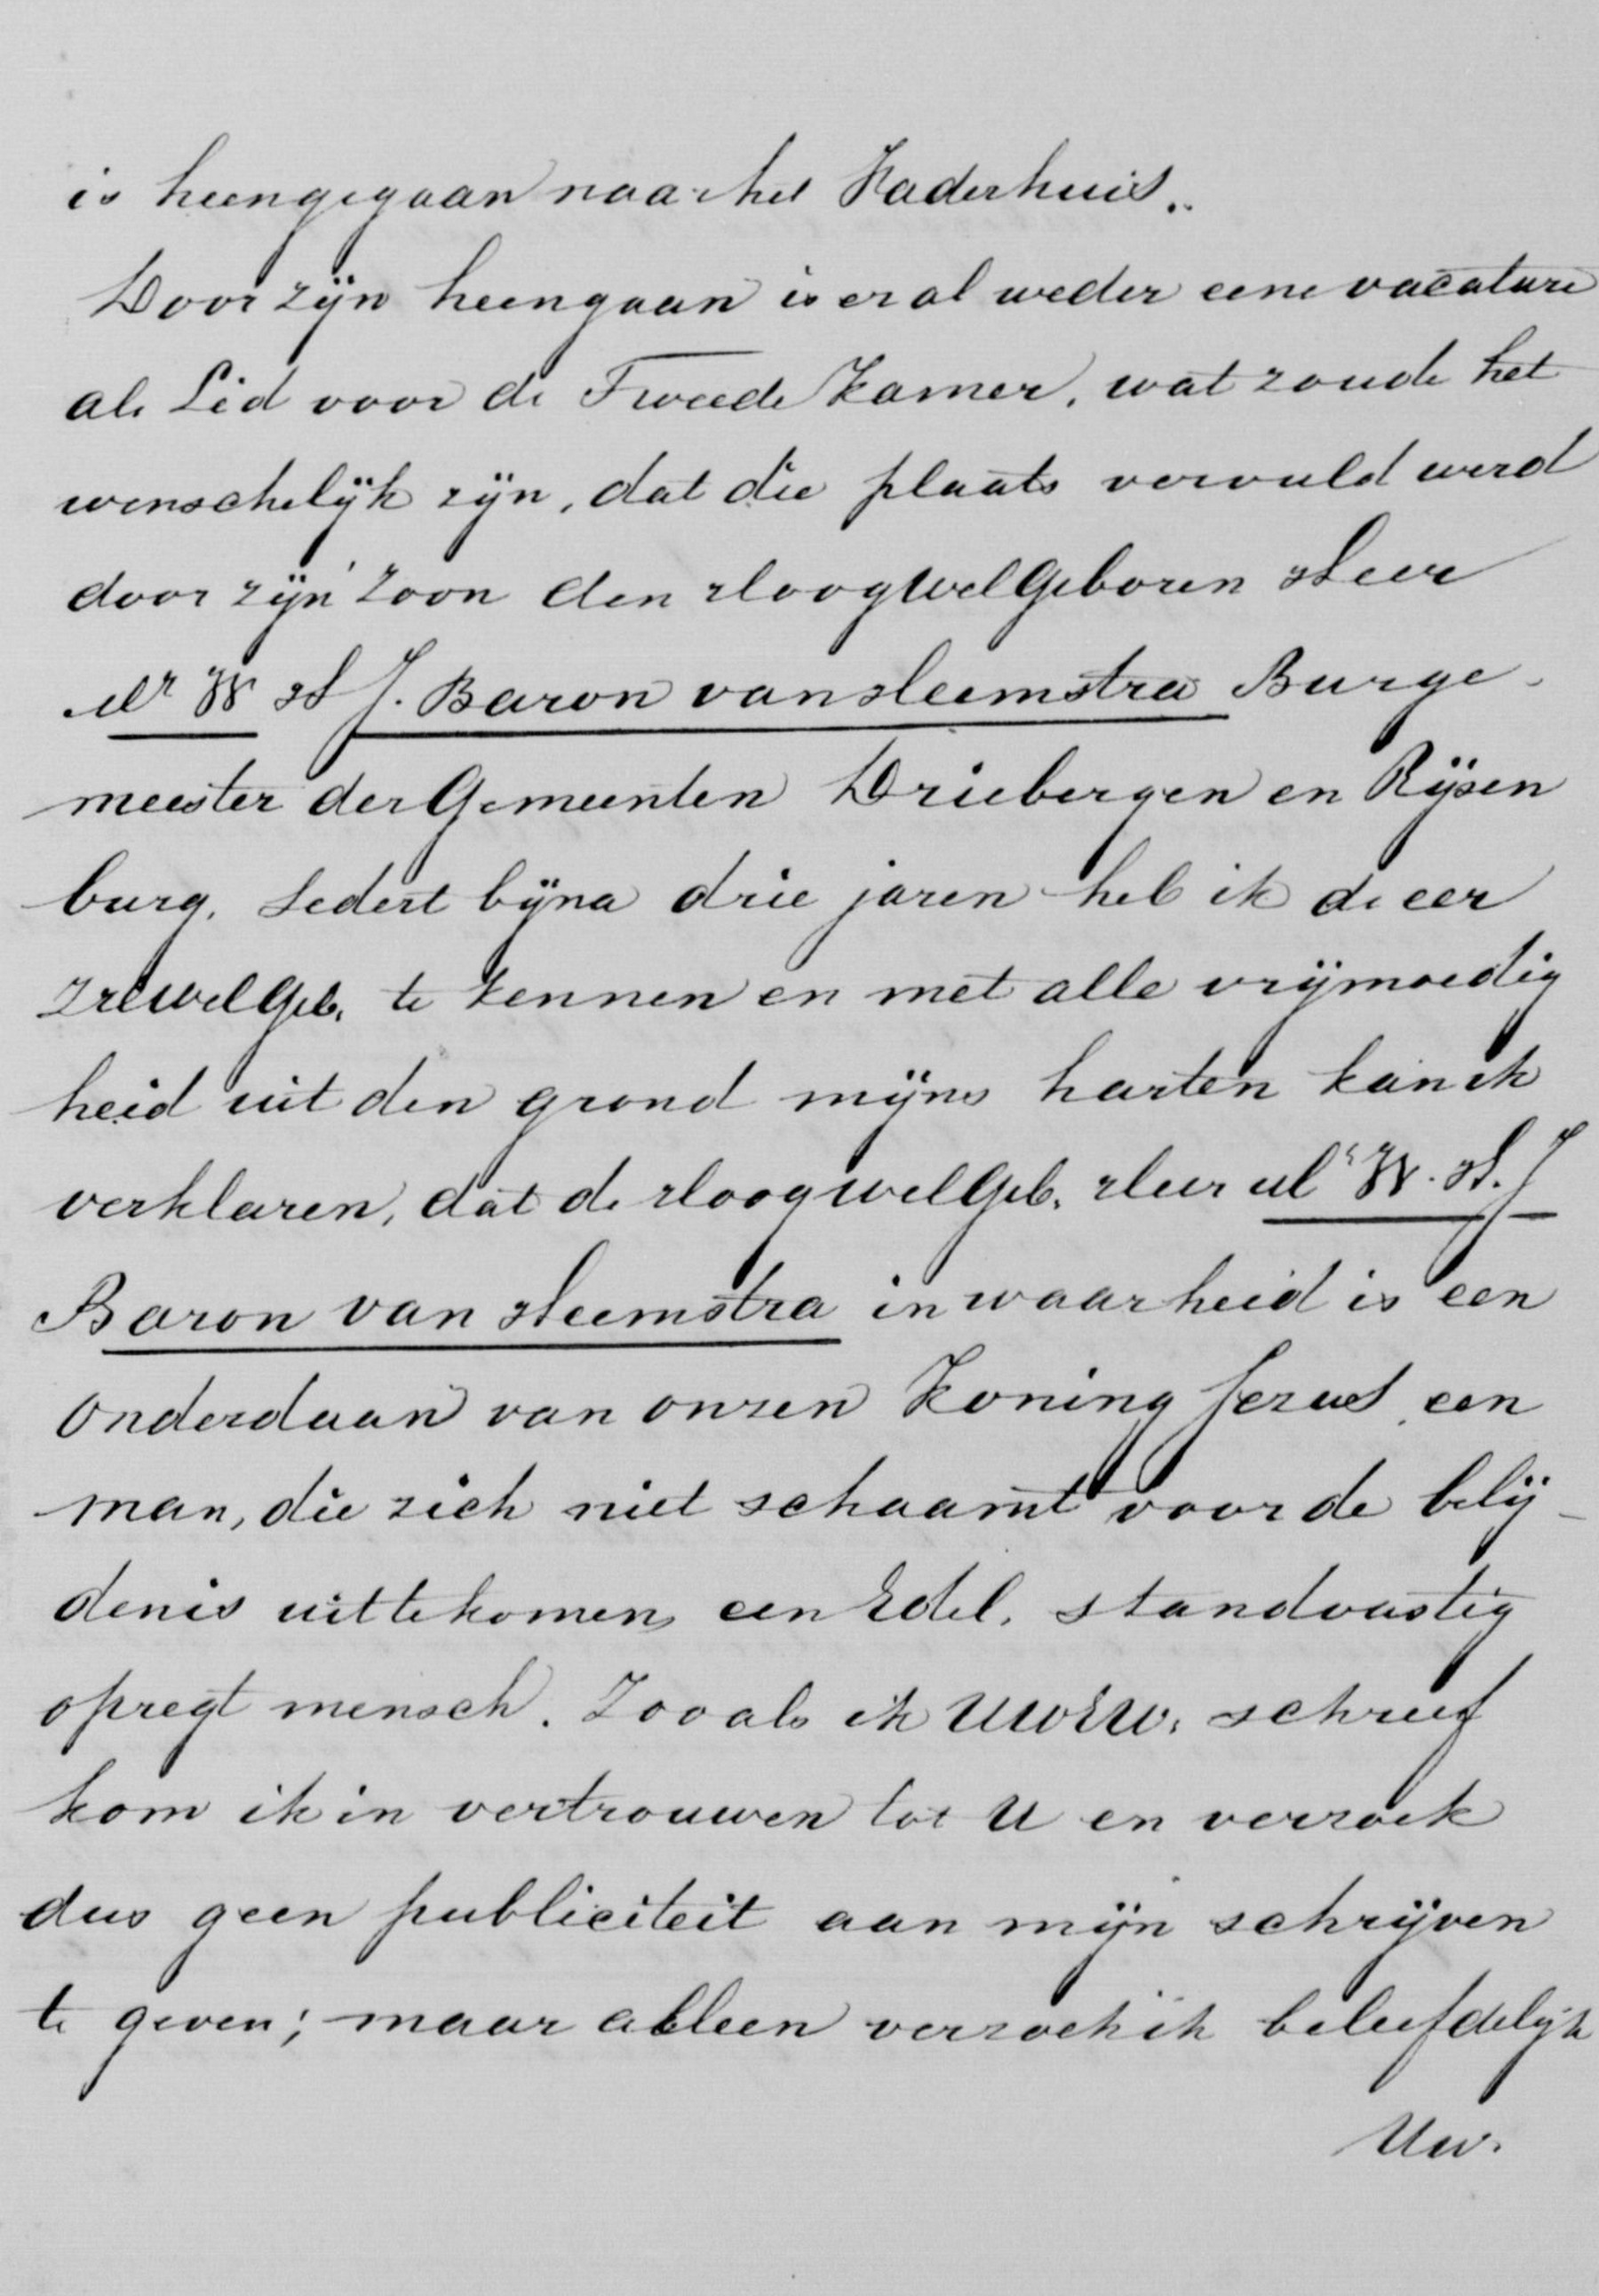 is heengegaan naar het Vaderhuis..
Door zijn heengaan is er al weder eene vacature
als Lid voor de Tweede Kamer, wat zoude het
wenschelijk zijn, dat die plaats vervuld werd
door zijn zoon den HoogWelGeboren Heer
Mr W H J. Baron van Heemstra Burge-
meester der Gemeenten Driebergen en Rijsen
burg. Sedert bijna drie jaren heb ik de eer
ZHWelGeb. te kennen en met alle vrijmoedig
heid uit den grond mijns harten kan ik
verklaren, dat de HoogwelGeb. Heer Mr W. H. J
Baron van Heemstra in waarheid is een
Onderdaan van onzen Koning Jezus, een
man, die zich niet schaamt voor de belij-
denis uittekomen, een Edel, standvastig
opregt mensch. Zooals ik UWEW. schreef
kom ik in vertrouwen tot U en verzoek
dus geen publiciteit aan mijn schrijven
te geven; maar alleen verzoek ik beleefdelijk
Uw.